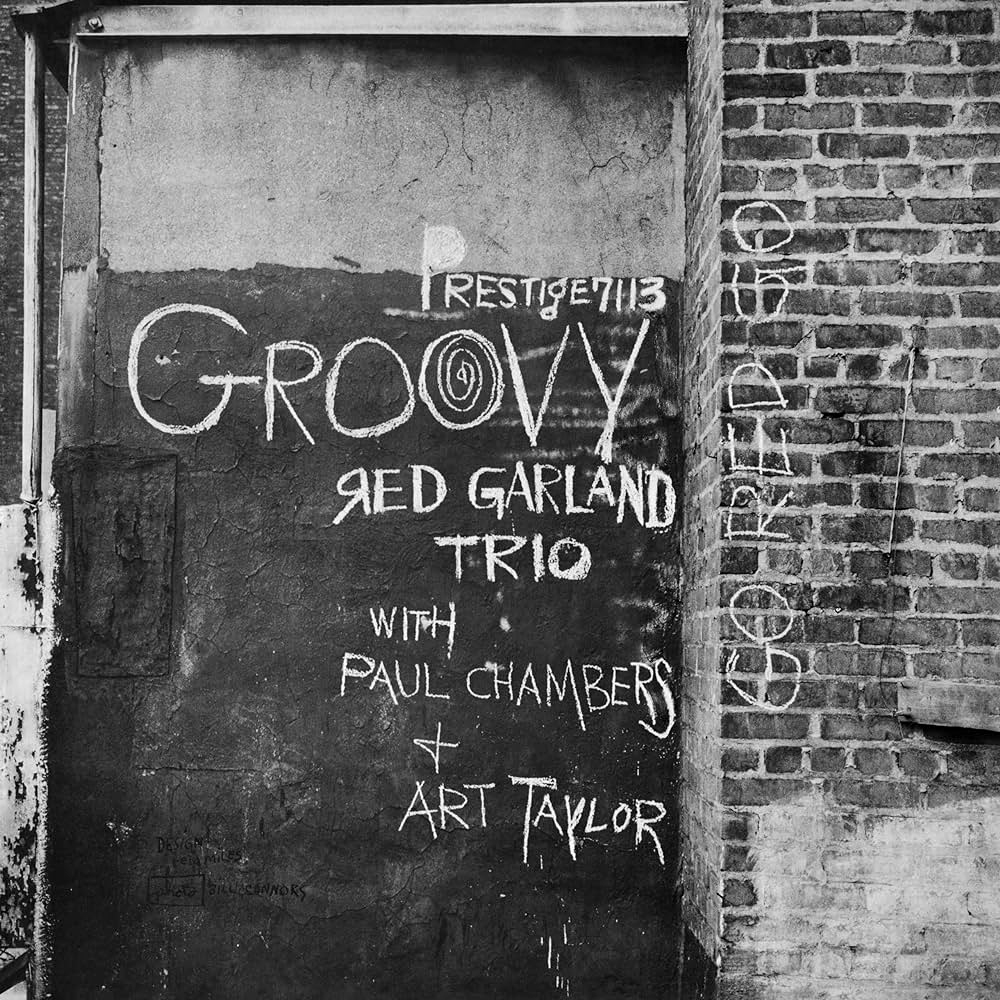 PRESTIgE7113
GROOVY
RED GARLAND
TRIO
WITH
PAUL CHAMBERS
+
ART TAYLOR
GO RED GO
DESIGN
reid MILES
photo BILL CONNORS